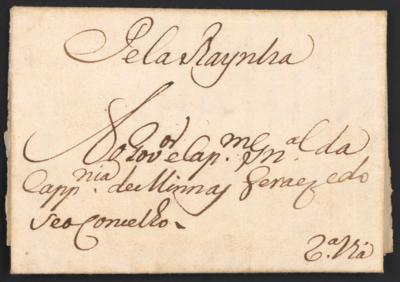 Pela Raynha
Ao Gov.or e Cap.m Gn.al da
Capp.nia de Minnas Geraes, e do
seo Concelho.
2.a Via